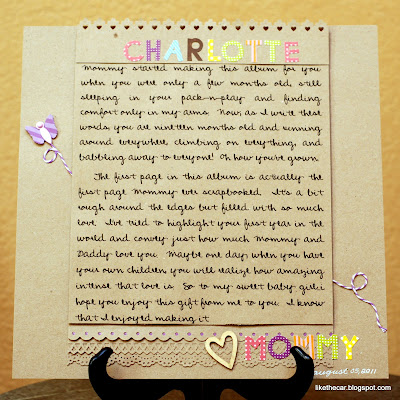 CHARLOTTE
Mommy started making this album for you
when you were only a few months old, still
sleeping in your pack-n-play and finding
comfort only in my arms. Now, as I write these
words, you are nineteen months old and running
around everywhere, climbing on everything, and
babbling away to everyone! Oh how you've grown.
The first page in this album is actually the
first page Mommy ever scrapbooked. It's a bit
rough around the edges but filled with so much
love. I've tried to highlight your first year in the
world and convey just how much Mommy and
Daddy love you. Maybe one day, when you have
your own children you will realize how amazing
intense that love is. So to my sweet baby girl: i
hope you enjoy this gift from me to you. I know
that I enjoyed making it.
MOMMY
august 03, 2011
likethecar.blogspot.com